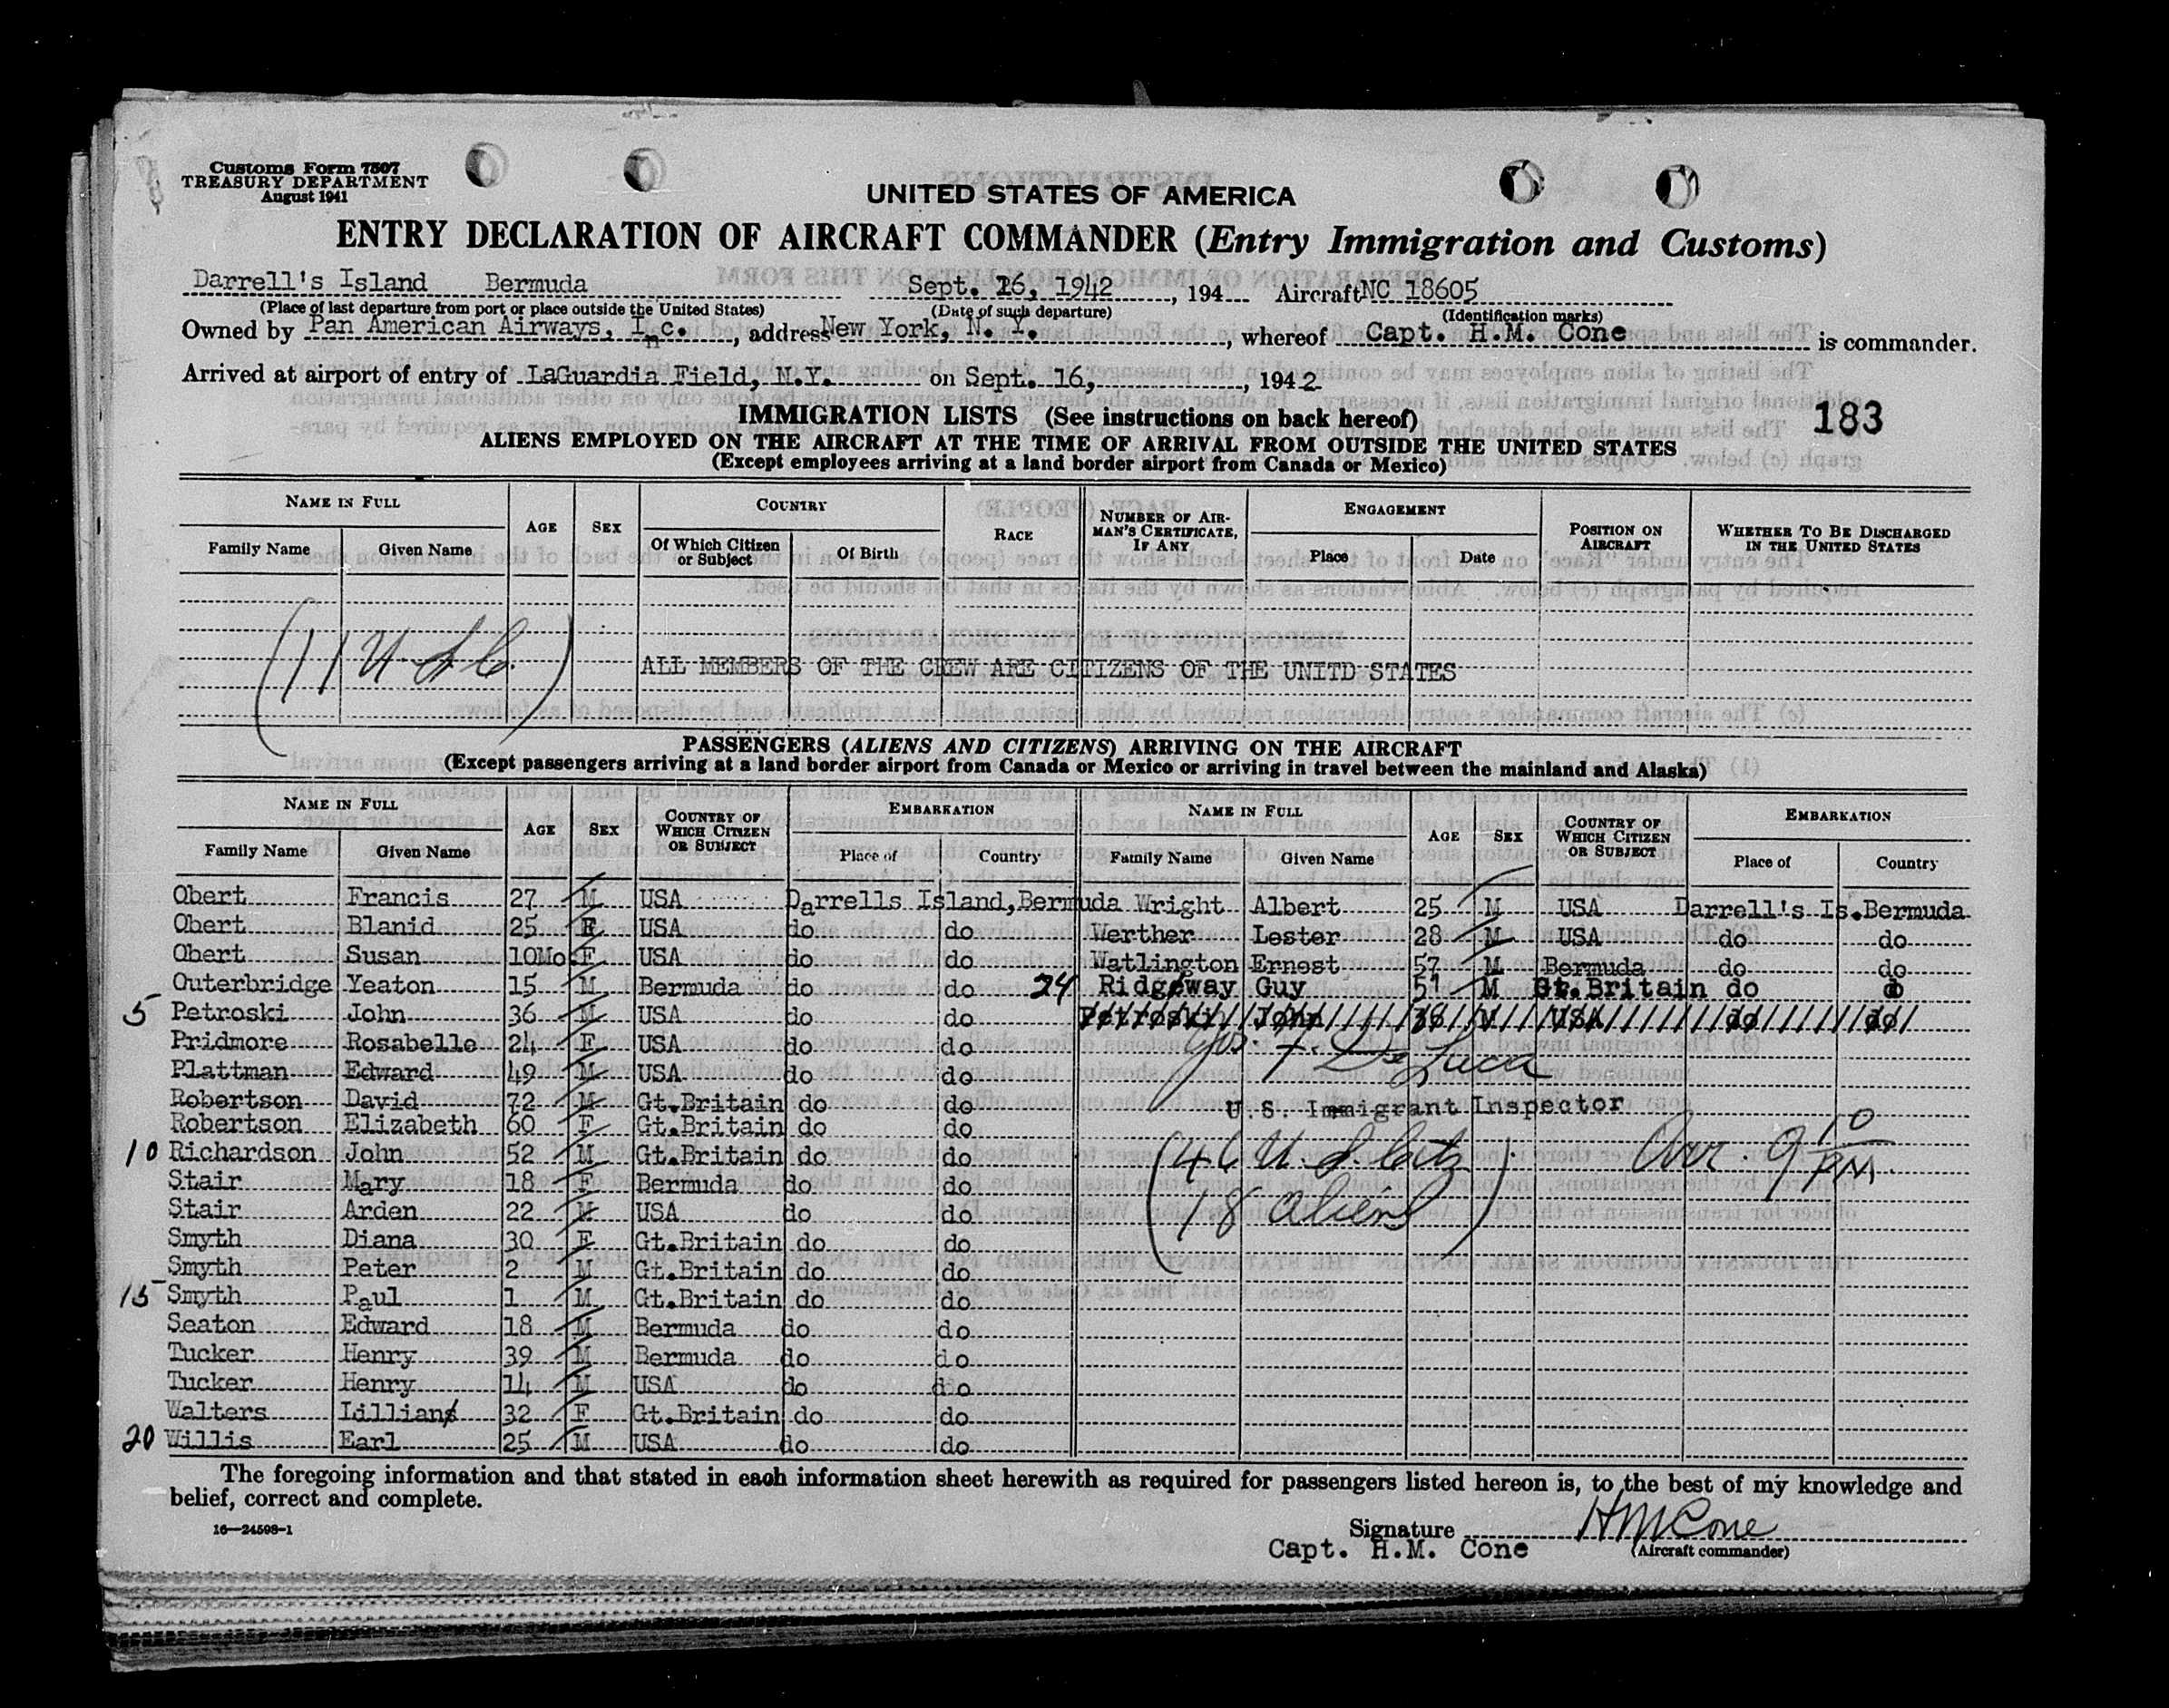 Customs Form 7507
TREASURY DEPARTMENT
August 1941
UNITED STATES OF AMERICA
ENTRY DECLARATION OF AIRCRAFT COMMANDER (Entry Immigration and Customs)
Darrell's Island Bermuda Sept. 16, 1942, 194 Aircraft NC 18605
(Place of last departure from port or place outside the United States) (Date of such departure) (Identification marks)
Owned by Pan American Airways, Inc., address New York, N. Y., whereof Capt. H.M. Cone is commander.
Arrived at airport of entry of LaGuardia Field, N.Y. on Sept. 16, , 1942
IMMIGRATION LISTS (See instructions on back hereof) 183
ALIENS EMPLOYED ON THE AIRCRAFT AT THE TIME OF ARRIVAL FROM OUTSIDE THE UNITED STATES
(Except employees arriving at a land border airport from Canada or Mexico)
NAME IN FULL AGE SEX COUNTRY RACE NUMBER OF AIRMAN'S CERTIFICATE, IF ANY ENGAGEMENT POSITION ON AIRCRAFT WHETHER TO BE DISCHARGED IN THE UNITED STATES
Family Name Given Name Of Which Citizen or Subject Of Birth Place Date
(11 U.S.C.)
ALL MEMBERS OF THE CREW ARE CITIZENS OF THE UNITD STATES
PASSENGERS (ALIENS AND CITIZENS) ARRIVING ON THE AIRCRAFT
(Except passengers arriving at a land border airport from Canada or Mexico or arriving in travel between the mainland and Alaska)
NAME IN FULL AGE SEX COUNTRY OF WHICH CITIZEN OR SUBJECT EMBARKATION NAME IN FULL AGE SEX COUNTRY OF WHICH CITIZEN OR SUBJECT EMBARKATION
Family Name Given Name Place of Country Family Name Given Name Place of Country
Obert Francis 27 M USA Darrells Island, Bermuda Wright Albert 25 M USA Darrell's Is. Bermuda
Obert Blanid 25 F USA do do Werther Lester 28 M USA do do
Obert Susan 10Mo. F USA do do Watlington Ernest 57 M Bermuda do do
Outerbridge Yeaton 15 M Bermuda do do 24 Ridgeway Guy 51 M Gt.Britain do do
5 Petroski John 36 M USA do do Petroski John 36 M USA do do
Pridmore Rosabelle 24 F USA do do
Jos. F. De Luca
Plattman Edward 49 M USA do do
Robertson David 72 M Gt.Britain do do
U.S. Immigrant Inspector
Robertson Elizabeth 60 F Gt.Britain do do
10 Richardson John 52 M Gt.Britain do do (46 U.S. Citz Arr. 9 10 PM.
Stair Mary 18 F Bermuda do do
Stair Arden 22 M USA do do 18 Aliens)
Smyth Diana 30 F Gt.Britain do do
Smyth Peter 2 M Gt.Britain do do
15 Smyth Paul 1 M Gt.Britain do do
Seaton Edward 18 M Bermuda do do
Tucker Henry 39 M Bermuda do do
Tucker Henry 14 M USA do do
Walters Lillian 32 F Gt.Britain do do
20 Willis Earl 25 M USA do do
The foregoing information and that stated in each information sheet herewith as required for passengers listed hereon is, to the best of my knowledge and
belief, correct and complete.
16—24598-1
Signature HMCone
Capt. H.M. Cone (Aircraft commander)